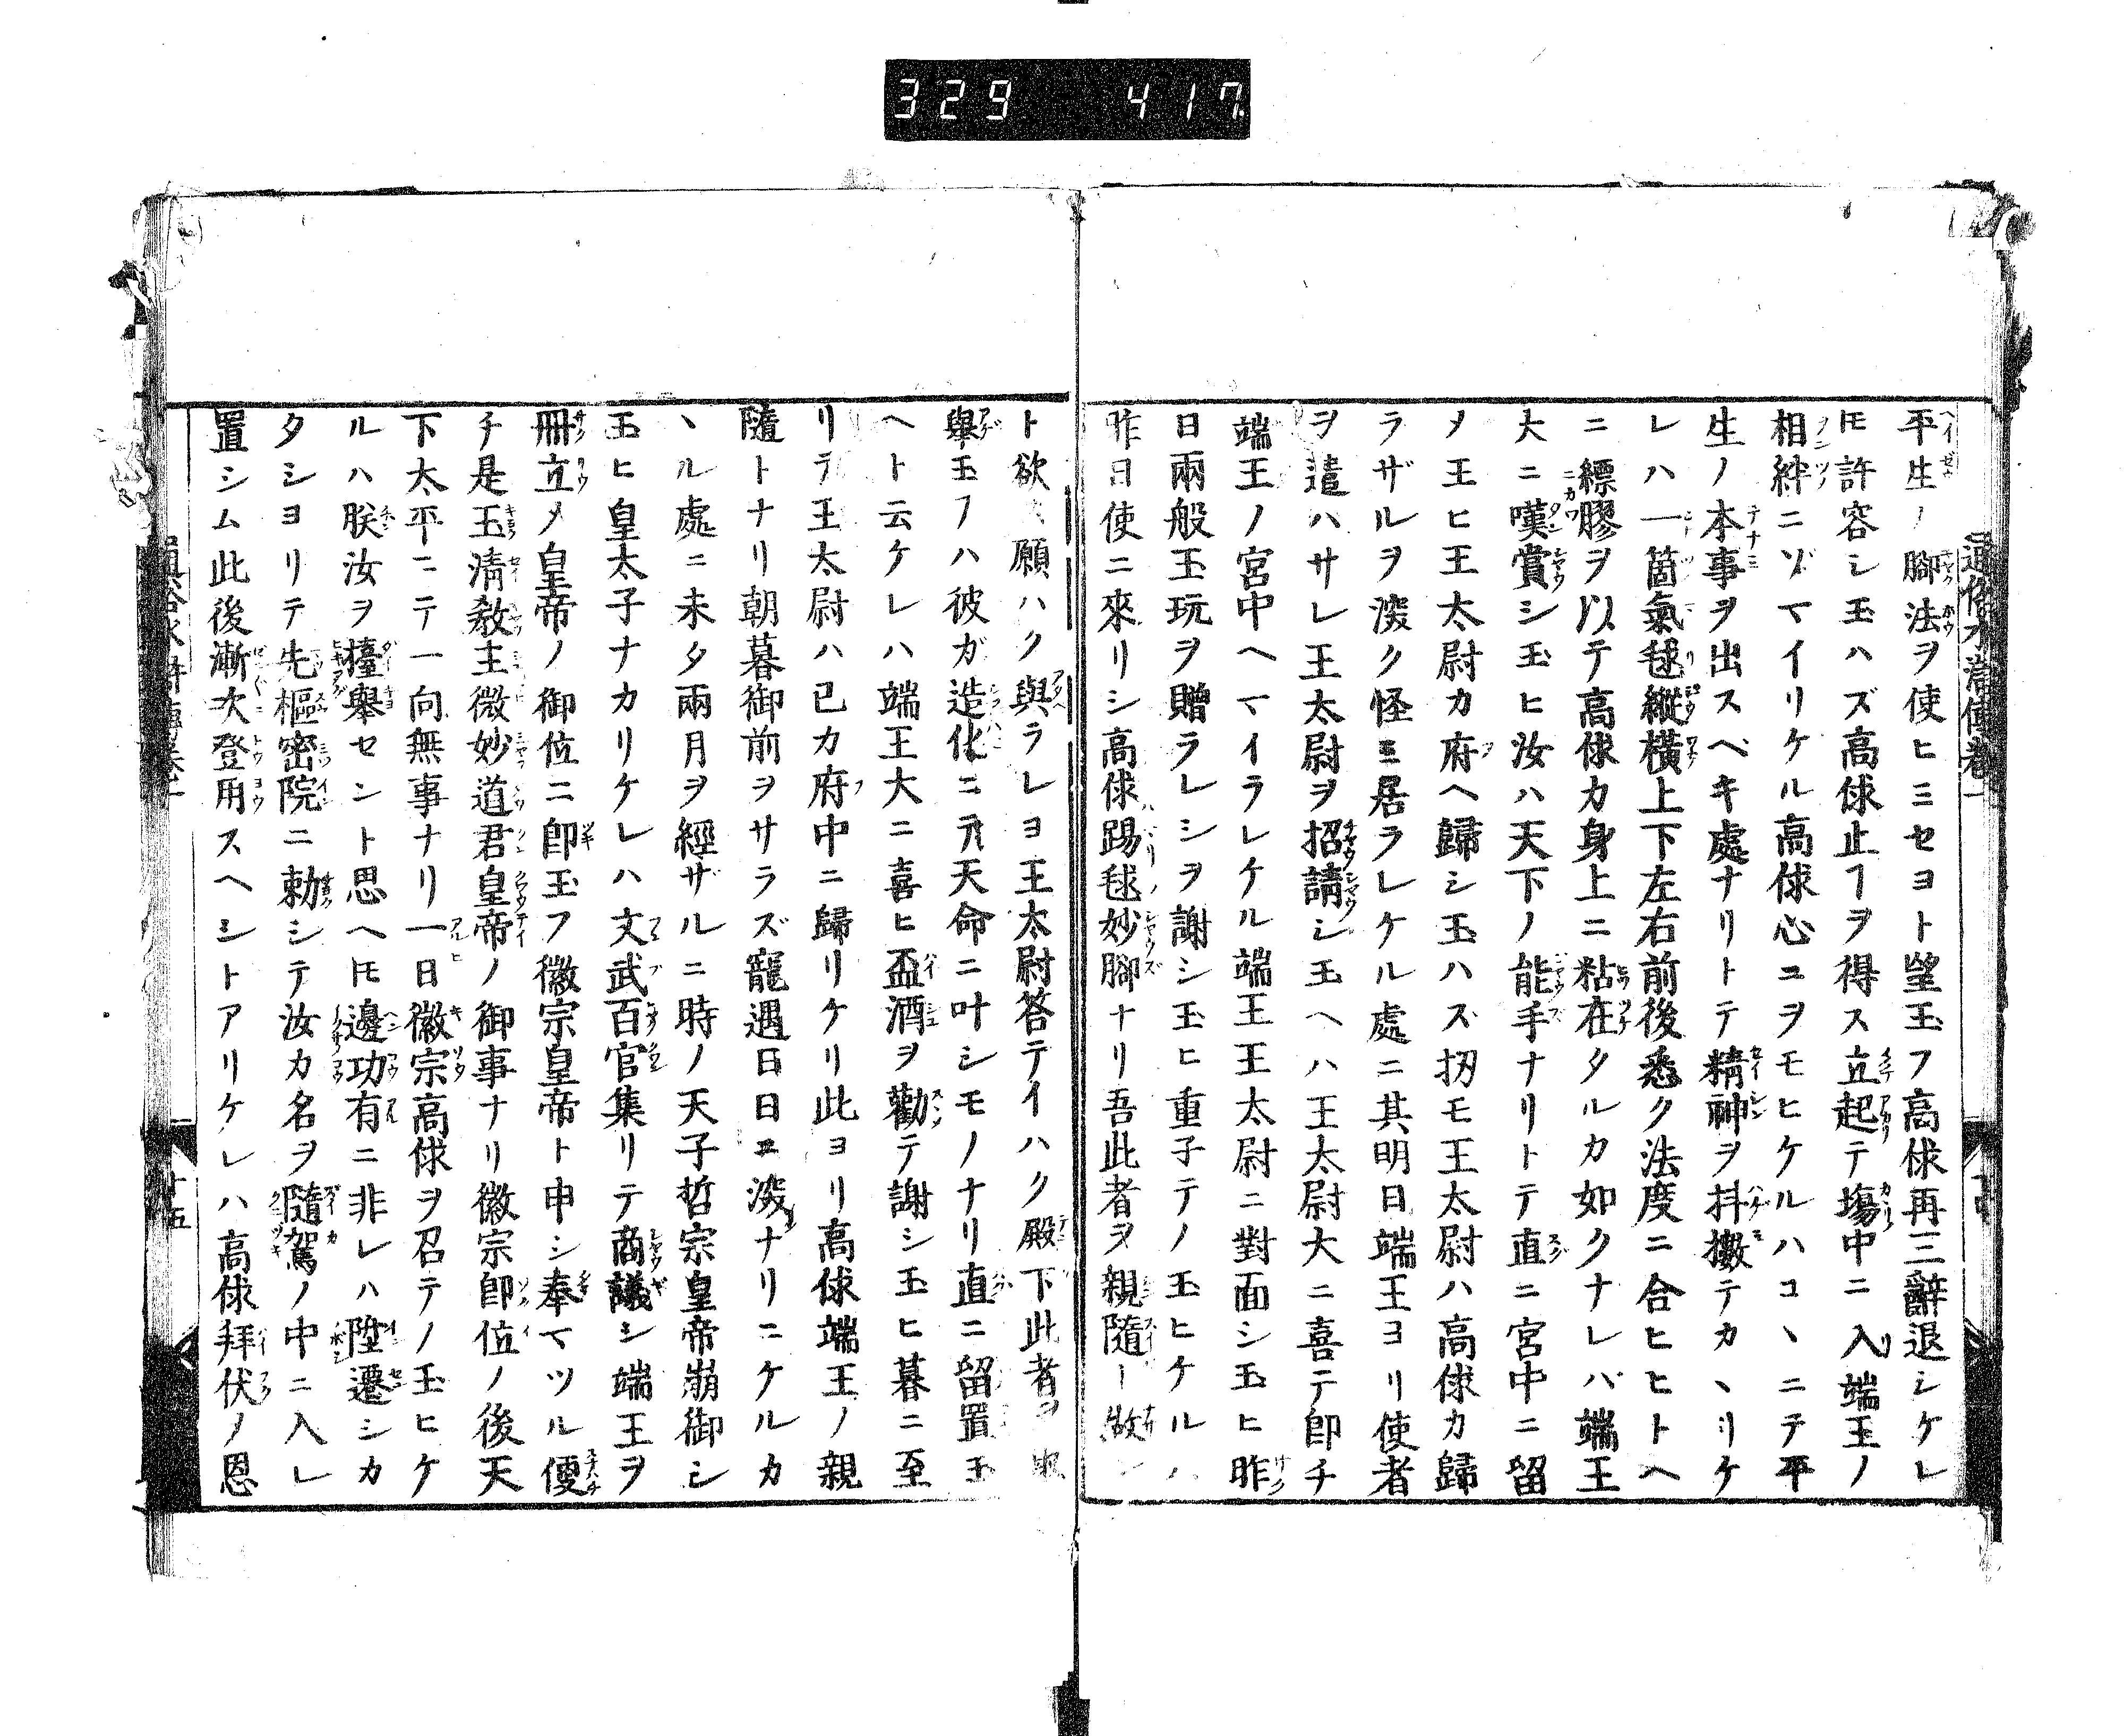 329 417
通俗水滸傳卷一
平生ノ脚法ヲ使ヒミセヨト望玉フ高俅再三辭退シケレ
𪜈許容シ玉ハズ高俅止ヿヲ得ス立起テ塲中ニ入端王ノ
相絆ニゾマイリケル高俅心ニヲモヒケルハコヽニテ平
生ノ本事ヲ出スベキ處ナリトテ精神ヲ抖擻テカヽリケ
レハ一箇氣毬縱橫上下左右前後悉ク法度ニ合ヒヒトヘ
ニ縹膠ヲ以テ高俅カ身上ニ粘在タルカ如クナレバ端王
大ニ嘆賞シ玉ヒ汝ハ天下ノ能手ナリトテ直ニ宮中ニ留
メ王ヒ王太尉カ府ヘ歸シ玉ハズ扨モ王太尉ハ高俅カ歸
ラザルヲ深ク怪ミ居ラレケル處ニ其明日端王ヨリ使者
ヲ遣ハサレ王太尉ヲ招請シ玉ヘハ王太尉大ニ喜テ卽チ
端王ノ宮中ヘマイラレケル端王王太尉ニ對面シ玉ヒ昨
日兩般玉玩ヲ贈ラレシヲ謝シ玉ヒ重子テノ玉ヒケルハ
昨日使ニ來リシ高俅踢毬妙脚ナリ吾此者ヲ親隨
ト欲 願ハク與ラレヨ王太尉答テイハク殿下此者ヲ
擧玉フハ彼ガ造化ニテ天命ニ叶シモノナリ直ニ留置玉
ヘト云ケレハ端王大ニ喜ヒ盃酒ヲ勸テ謝シ玉ヒ暮ニ至
リテ王太尉ハ已カ府中ニ歸リケリ此ヨリ高俅端王ノ親
隨トナリ朝暮御前ヲサラズ寵遇日日ニ深ナリニケルカ
ヽル處ニ未タ兩月ヲ經ザルニ時ノ天子哲宗皇帝崩御シ
玉ヒ皇太子ナカリケレハ文武百官集リテ商議シ端王ヲ
冊立メ皇帝ノ御位ニ卽玉フ徽宗皇帝ト申シ奉マツル便
チ是玉淸敎主微妙道君皇帝ノ御事ナリ徽宗卽位ノ後天
下太平ニテ一向無事ナリ一日徽宗高俅ヲ召テノ玉ヒケ
ルハ朕汝ヲ擡擧セント思ヘ𪜈邊功有ニ非レハ陞遷シカ
タシヨリテ先樞密院ニ勅シテ汝カ名ヲ隨駕ノ中ニ入レ
置シム此後漸次登用スヘシトアリケレハ高俅拜伏ノ恩
十五